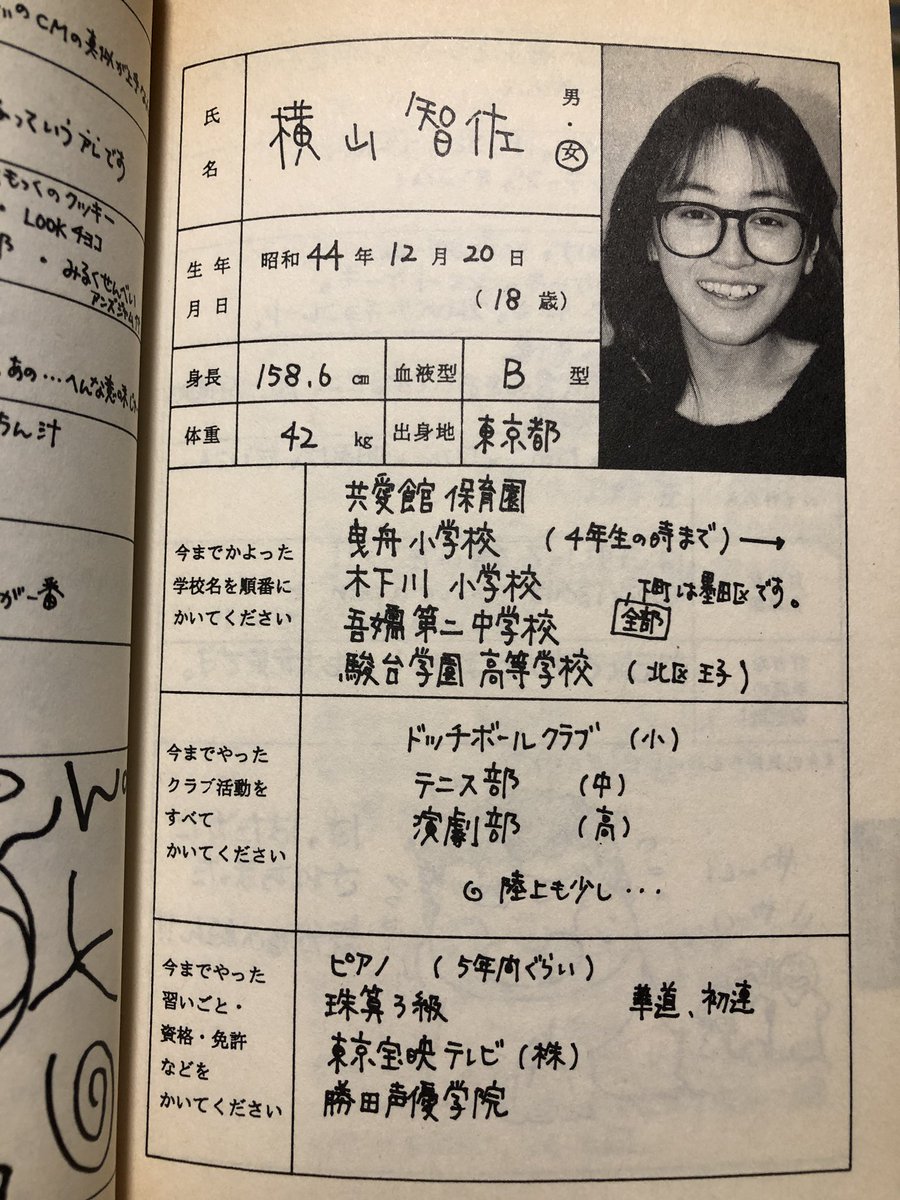 のCMの真似が上手な
っていうアレです
もっくのクッキー
・LOOKチョコ
・みるくせんべい
アンズジャム
あの…へんな意味じゃ
ちん汁
が一番
氏名
横山 智佐
男・女
生年月日
昭和44年12月20日
(18歳)
身長
158.6 cm
血液型
B 型
体重
42 kg
出身地
東京都
今までかよった
学校名を順番に
かいてください
共愛館 保育園
曳舟 小学校 (4年生の時まで)→
木下川 小学校
下町は墨田区です。
全部
吾嬬 第二 中学校
駿台学園 高等学校 (北区王子)
今までやった
クラブ活動を
すべて
かいてください
ドッチボールクラブ (小)
テニス部 (中)
演劇部 (高)
陸上も少し・・・
今までやった
習いごと・
資格・免許
などを
かいてください
ピアノ (5年間ぐらい)
珠算3級
華道、初連
東京宝映テレビ(株)
勝田声優学院